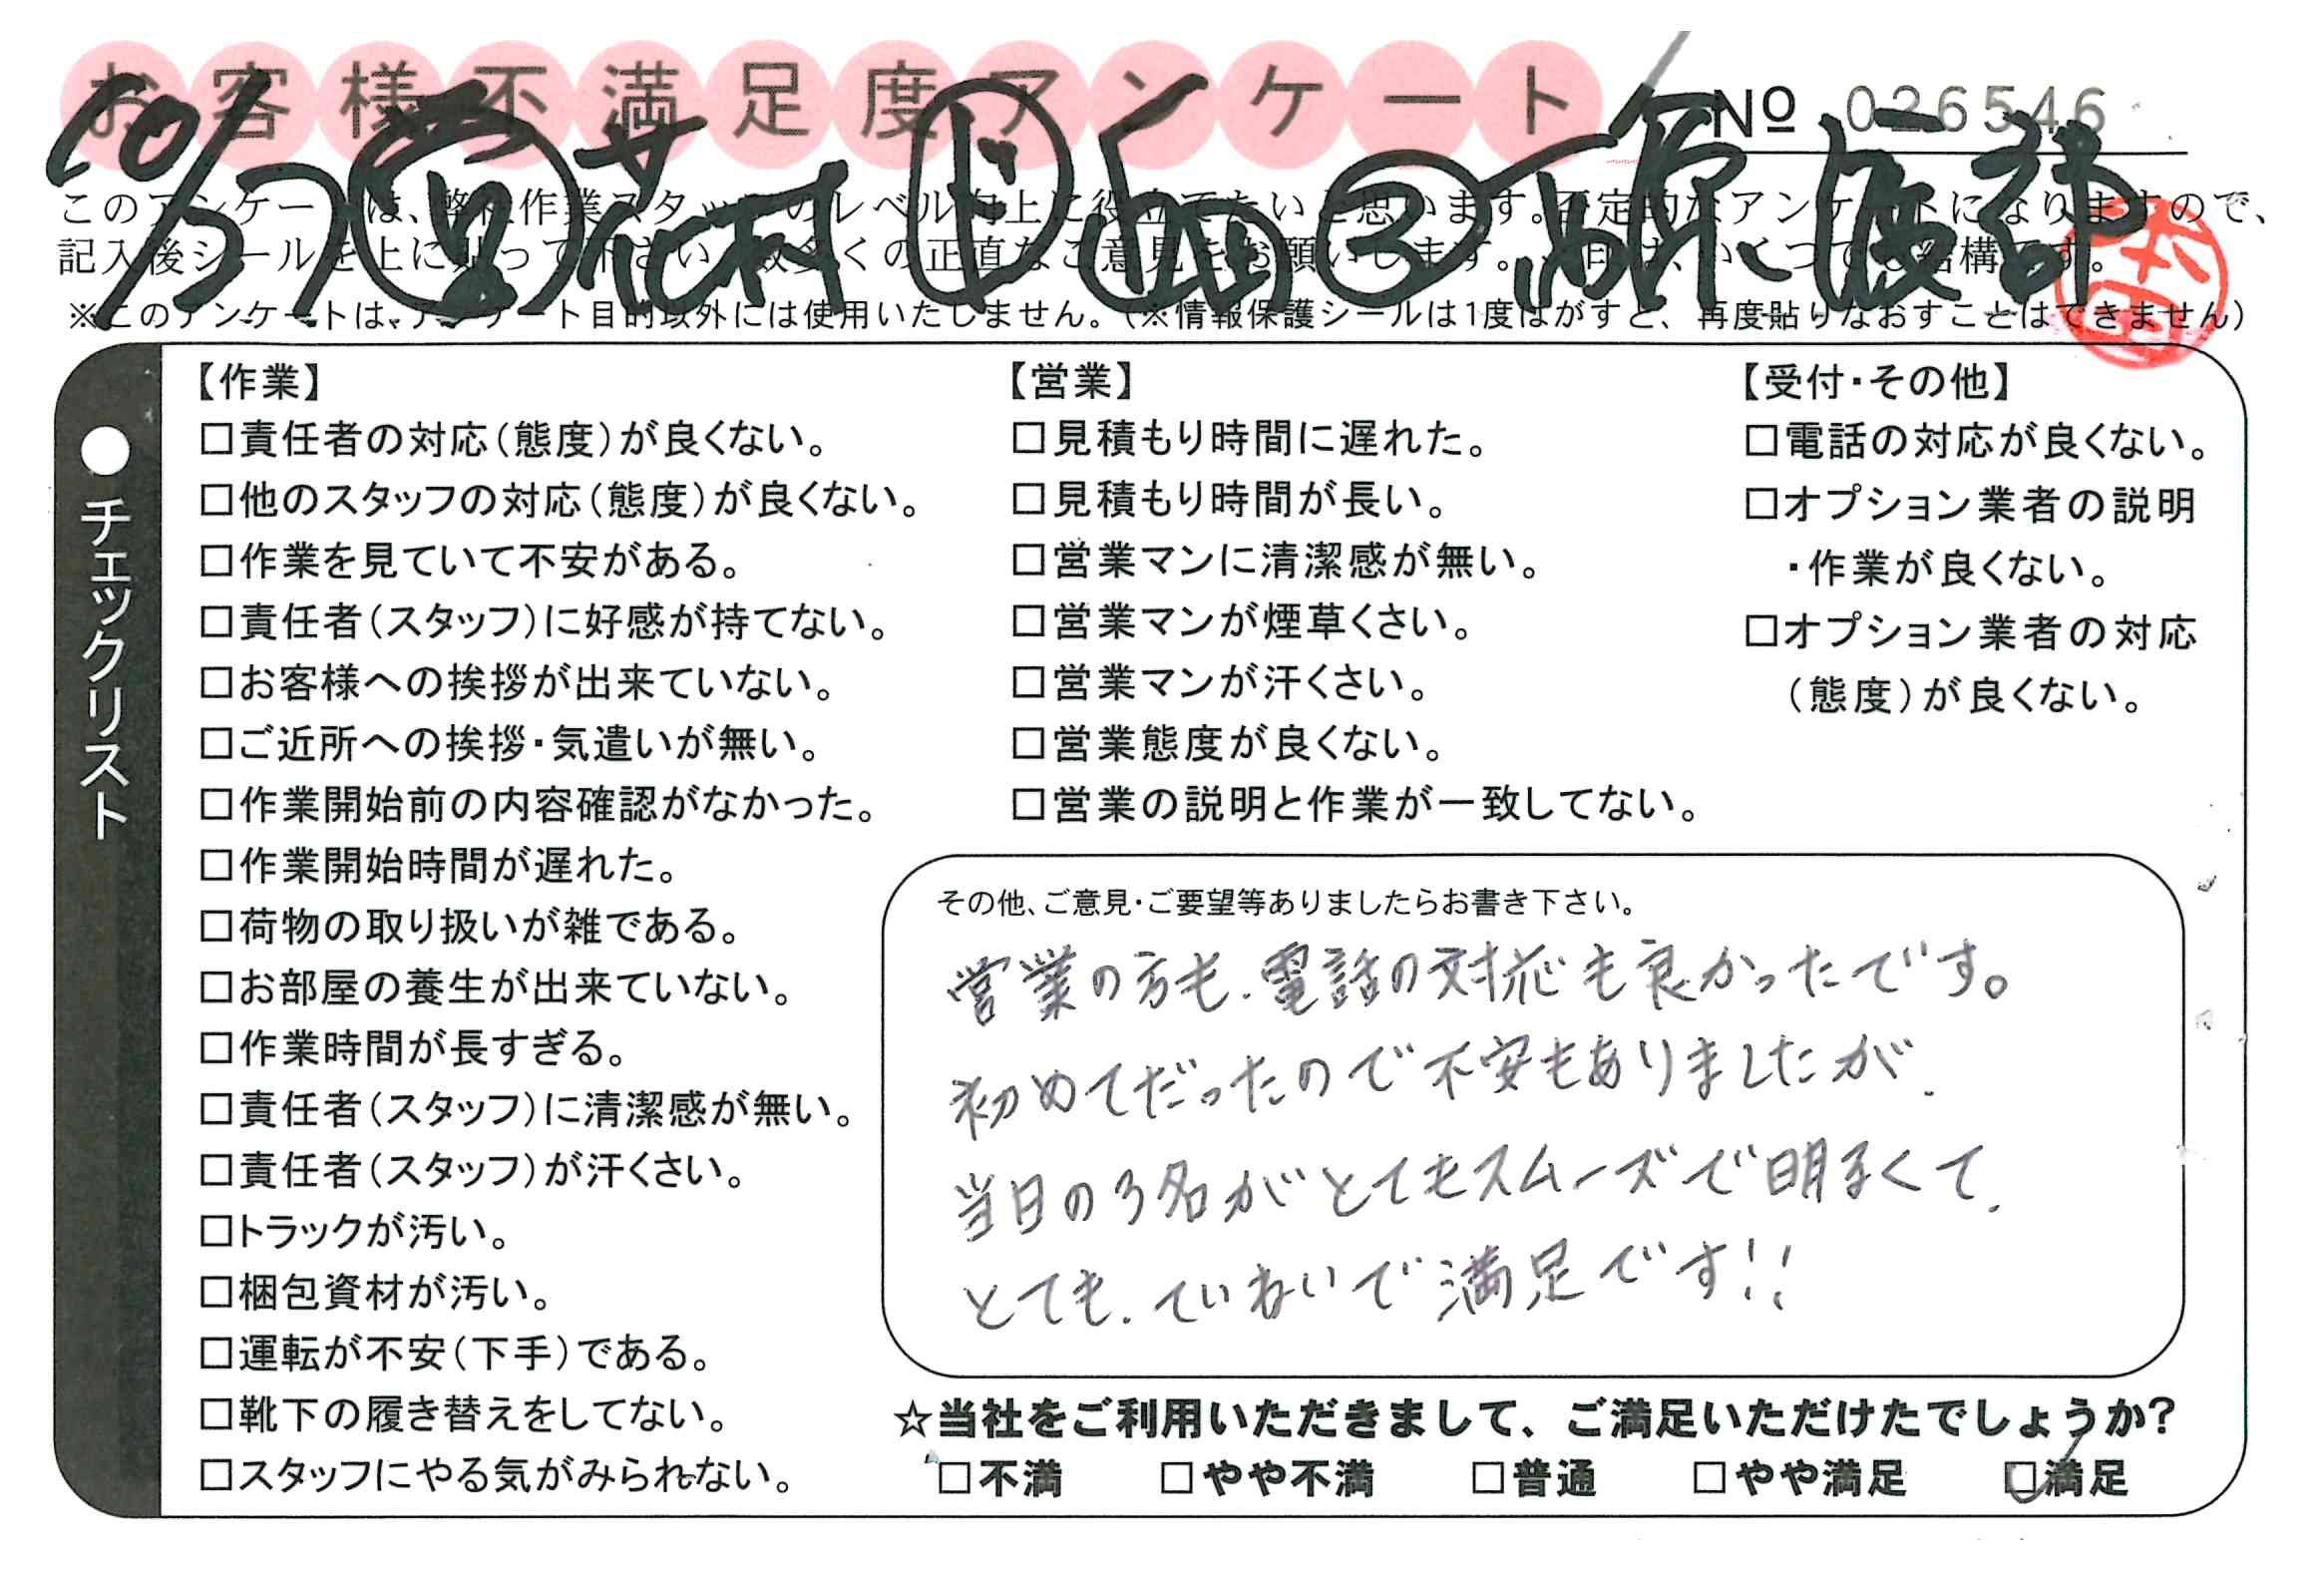 お客様不満足度アンケート
№ 026546
10/27 花村 ド 山田 ② 原、渡部
このアンケートは、弊社作業スタッフのレベル向上に役立てたいと思います。否定的なアンケートになりますので、
記入後シールを上に貼って下さい。数多くの正直なご意見をお願いします。×印は、いくつでも結構です。
※このアンケートは、アンケート目的以外には使用いたしません。(※情報保護シールは1度はがすと、再度貼りなおすことはできません)
本田
●チェックリスト
【作業】
□責任者の対応(態度)が良くない。
□他のスタッフの対応(態度)が良くない。
□作業を見ていて不安がある。
□責任者(スタッフ)に好感が持てない。
□お客様への挨拶が出来ていない。
□ご近所への挨拶・気遣いが無い。
□作業開始前の内容確認がなかった。
□作業開始時間が遅れた。
□荷物の取り扱いが雑である。
□お部屋の養生が出来ていない。
□作業時間が長すぎる。
□責任者(スタッフ)に清潔感が無い。
□責任者(スタッフ)が汗くさい。
□トラックが汚い。
□梱包資材が汚い。
□運転が不安(下手)である。
□靴下の履き替えをしてない。
□スタッフにやる気がみられない。
【営業】
□見積もり時間に遅れた。
□見積もり時間が長い。
□営業マンに清潔感が無い。
□営業マンが煙草くさい。
□営業マンが汗くさい。
□営業態度が良くない。
□営業の説明と作業が一致してない。
【受付・その他】
□電話の対応が良くない。
□オプション業者の説明
・作業が良くない。
□オプション業者の対応
(態度)が良くない。
その他、ご意見・ご要望等ありましたらお書き下さい。
営業の方も、電話の対応も良かったです。
初めてだったので不安もありましたが、
当日の3名がとてもスムーズで明るくて、
とても、ていねいで満足です!!
☆当社をご利用いただきまして、ご満足いただけたでしょうか?
□不満 □やや不満 □普通 □やや満足 ☑満足